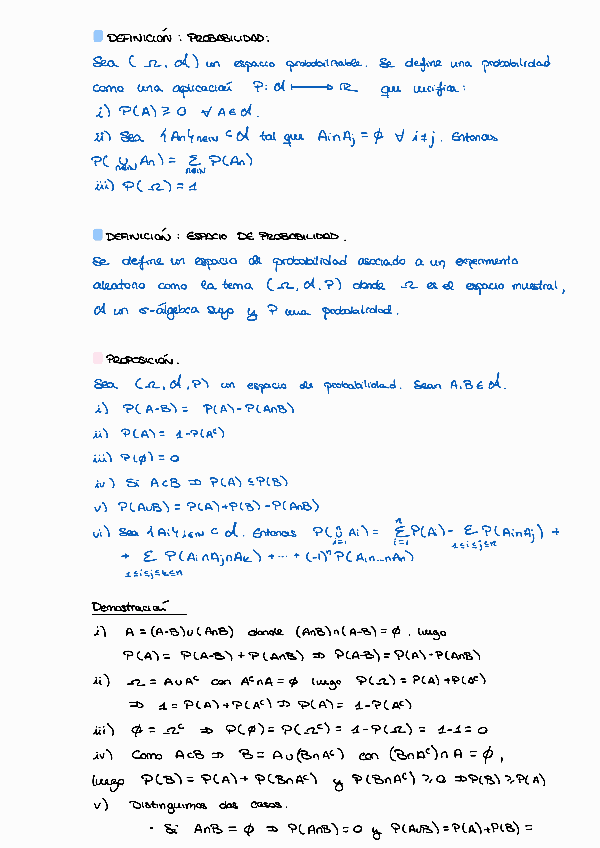 DEFINICIÓN : PROBABILIDAD.
Sea (Ω, 𝒜) un espacio probabilizable. Se define una probabilidad
como una aplicación P: 𝒜 ⟼ ℝ que verifica:
i) P(A) ⩾ 0 ∀ A∈𝒜.
ii) Sea {An}n∈ℕ ⊂ 𝒜 tal que Ai∩Aj = ∅ ∀ i≠j. Entonces
P(∪n∈ℕ An) = Σn∈ℕ P(An)
iii) P(Ω) = 1
DEFINICIÓN : ESPACIO DE PROBABILIDAD.
Se define un espacio de probabilidad asociado a un experimento
aleatorio como la terna (Ω, 𝒜, P) donde Ω es el espacio muestral,
𝒜 un σ-álgebra suyo y P una probabilidad.
PROPOSICIÓN.
Sea (Ω, 𝒜, P) un espacio de probabilidad. Sean A,B∈𝒜.
i) P(A-B) = P(A)-P(A∩B)
ii) P(A) = 1-P(Aᶜ)
iii) P(∅) = 0
iv) Si A⊂B ⇒ P(A) ≤ P(B)
v) P(A∪B) = P(A)+P(B)-P(A∩B)
vi) Sea {Ai}i∈ℕ ⊂ 𝒜. Entonces P(∪ⁿi=1 Ai) = Σⁿi=1 P(Ai) - Σ1≤i≤j≤n P(Ai∩Aj) +
+ Σ1≤i≤j≤k≤n P(Ai∩Aj∩Ak) + ··· + (-1)ⁿ P(A1∩...∩An)
Demostración
i) A = (A-B)∪(A∩B) donde (A∩B)∩(A-B) = ∅. Luego
P(A) = P(A-B) + P(A∩B) ⇒ P(A-B) = P(A)-P(A∩B)
ii) Ω = A∪Aᶜ con Aᶜ∩A = ∅ luego P(Ω) = P(A)+P(Aᶜ)
⇒ 1 = P(A)+P(Aᶜ) ⇒ P(A) = 1-P(Aᶜ)
iii) ∅ = Ωᶜ ⇒ P(∅) = P(Ωᶜ) = 1-P(Ω) = 1-1 = 0
iv) Como A⊂B ⇒ B = A∪(B∩Aᶜ) con (B∩Aᶜ)∩A = ∅,
luego P(B) = P(A) + P(B∩Aᶜ) y P(B∩Aᶜ) ⩾ 0 ⇒ P(B) ⩾ P(A)
v) Distinguimos dos casos.
· Si A∩B = ∅ ⇒ P(A∩B) = 0 y P(A∪B) = P(A)+P(B) =